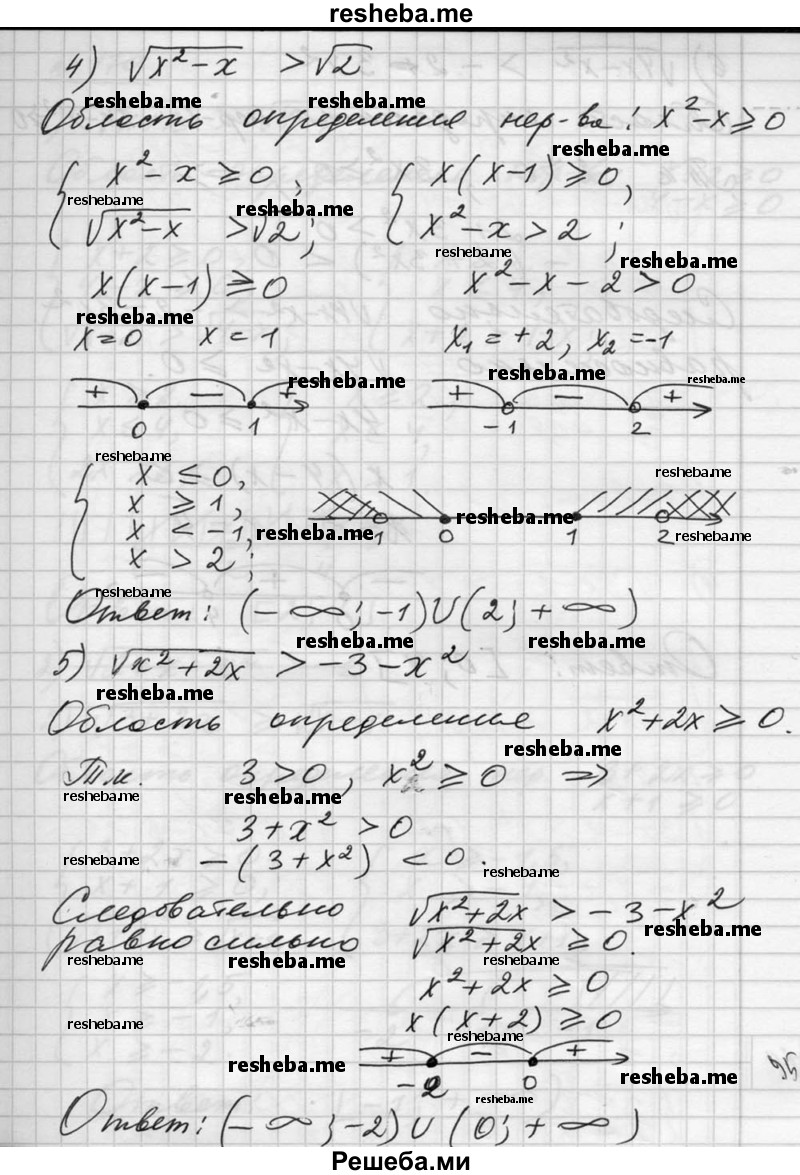 resheba.me
4) √(x² - x) > √2
resheba.me resheba.me
Область определения нер-ва: x² - x ≥ 0
resheba.me
{ x² - x ≥ 0, { x(x-1) ≥ 0,
resheba.me resheba.me
√(x² - x) > √2; x² - x > 2;
resheba.me resheba.me
x(x-1) ≥ 0 x² - x - 2 > 0
resheba.me
x = 0 x = 1 x₁ = +2, x₂ = -1
resheba.me resheba.me resheba.me
+ − + + − +
0 1 -1 2
resheba.me resheba.me
{ x ≤ 0,
x ≥ 1,
resheba.me
x < -1, resheba.me -1 0 1 2 resheba.me
x > 2;
resheba.me
Ответ: (-∞; -1) ∪ (2; +∞)
resheba.me resheba.me
5) √(x² + 2x) > -3 - x²
resheba.me
Область определения x² + 2x ≥ 0.
resheba.me
Т.к. 3 > 0, x² ≥ 0 ⇒
resheba.me resheba.me
3 + x² > 0
resheba.me -(3 + x²) < 0.
resheba.me
Следовательно √(x² + 2x) > -3 - x²
resheba.me
равносильно √(x² + 2x) ≥ 0.
resheba.me resheba.me resheba.me
x² + 2x ≥ 0
resheba.me x(x + 2) ≥ 0
resheba.me
resheba.me + − +
-2 0 resheba.me
resheba.me
Ответ: (-∞; -2) ∪ (0; +∞)
Решеба.ми